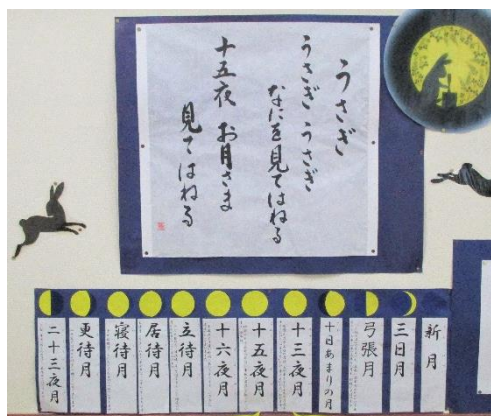 うさぎ
うさぎ うさぎ
なにを見てはねる
十五夜 お月さま
見てはねる
新月
三日月
弓張月
十日あまりの月
十三夜月
十五夜月
十六夜月
立待月
居待月
寝待月
更待月
二十三夜月